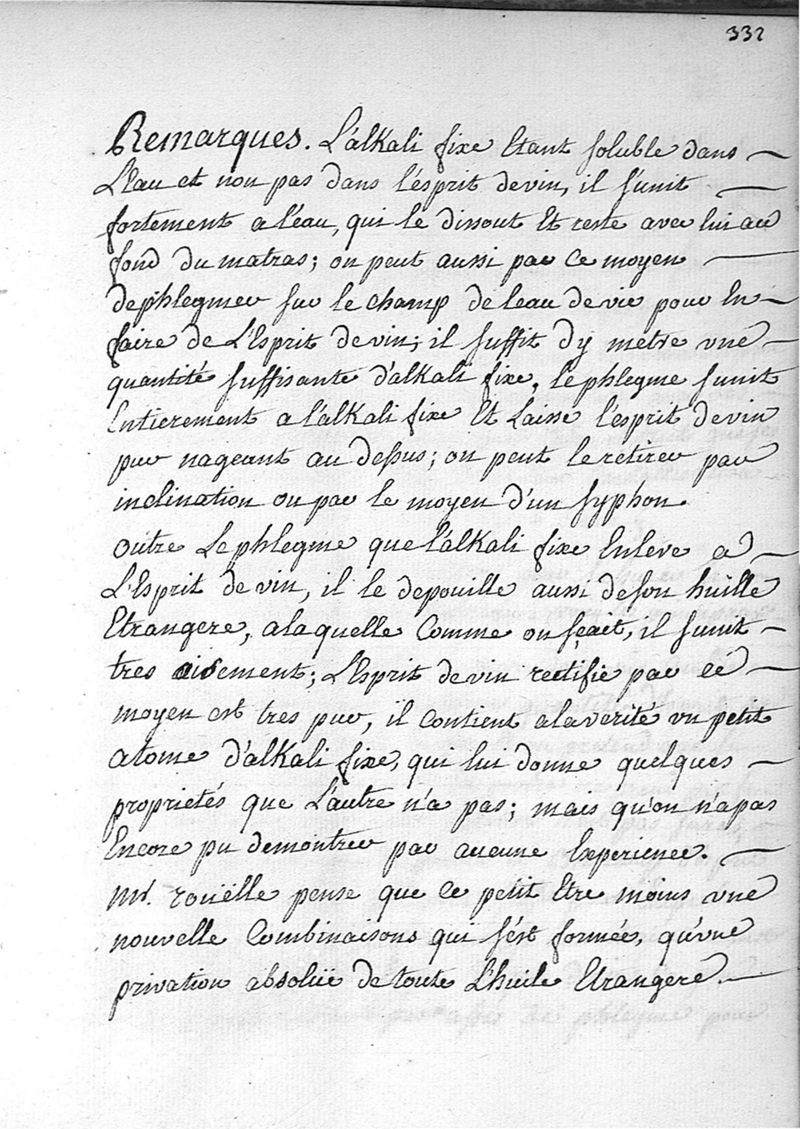 332
Remarques. L'alkali fixe Etant soluble dans
L'Eau et non pas dans l'ésprit de vin, il s'unit
fortement a l'éau, qui le dissout Et reste avec lui au
fond du matras; on peut aussi par ce moyen
dephlegmer sur le champ de leau de vie pour En
faire de L'Esprit de vin; il suffit d'y metre une
quantité suffisante d'alkali fixe, le phlegme s'unit
Entierement a l'alkali fixe Et Laisse l'ésprit de vin
pur nageant au dessus; on peut le retirer par
inclination ou par le moyen d'un syphon.
outre Le phlegme que l'alkali fixe Enleve a
L'Esprit de vin, il le depouille aussi de son huille
Etrangere, a laquelle Comme on sçait, il s'unit
tres aisement; L'Esprit de vin rectifié par cé
moyen est tres pur, il contient a la verité un petit
atome d'alkali fixe, qui lui donne quelques
proprietés que L'autre n'a pas; mais qu'on n'a pas
Encore pu demontrer par aucune Experience.
Mr. rouëlle pense que ce petit Etre moins une
nouvelle Combinaisons qui s'ést formée, qu'une
privation absoluë de toute L'huile Etrangere.